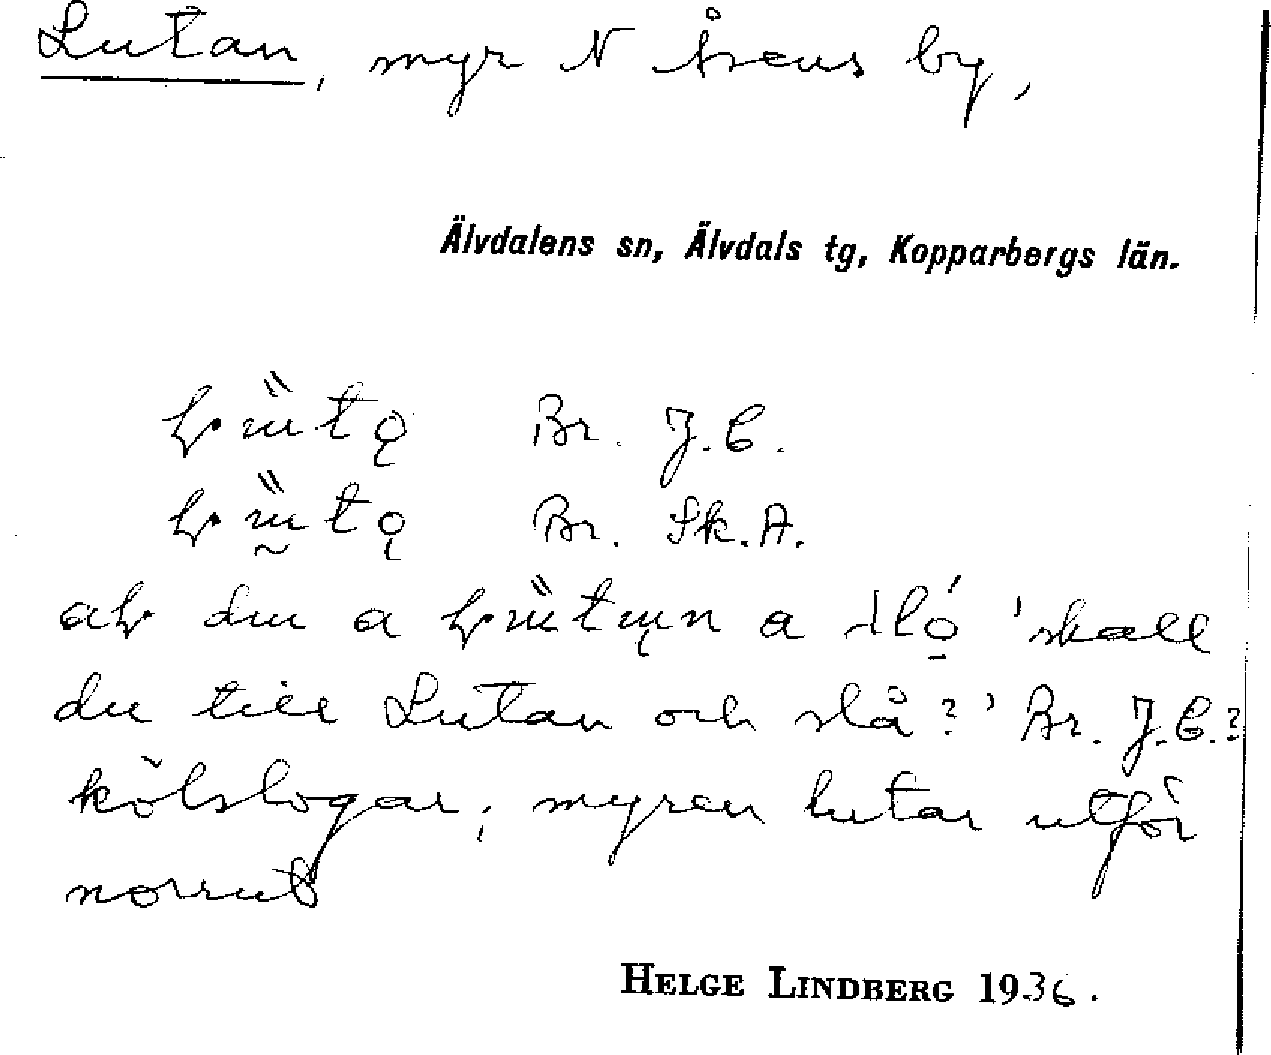 Lutan, myr N Åsens by,
Älvdalens sn, Älvdals tg, Kopparbergs län.
Br. J. E.
Br. Sk. A.
du a a 'skall
du till Lutan och slå?' Br. J. E.?
kölslogar; myren lutar utför
norrut
HELGE LINDBERG 1936.